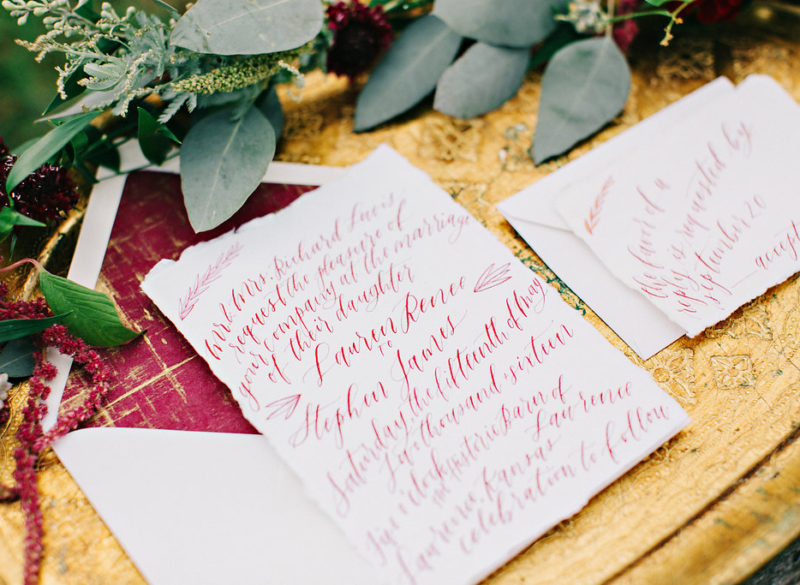 Mr. & Mrs. Richard Lewis
request the pleasure of
your company at the marriage
of their daughter
Lauren Renee
to
Stephen James
Saturday, the fifteenth of May
Two thousand sixteen
Five o'clock, Historic Barn of
Lawrence
Lawrence, Kansas
celebration to follow
the favor of a
reply is requested by
September 20
accepts